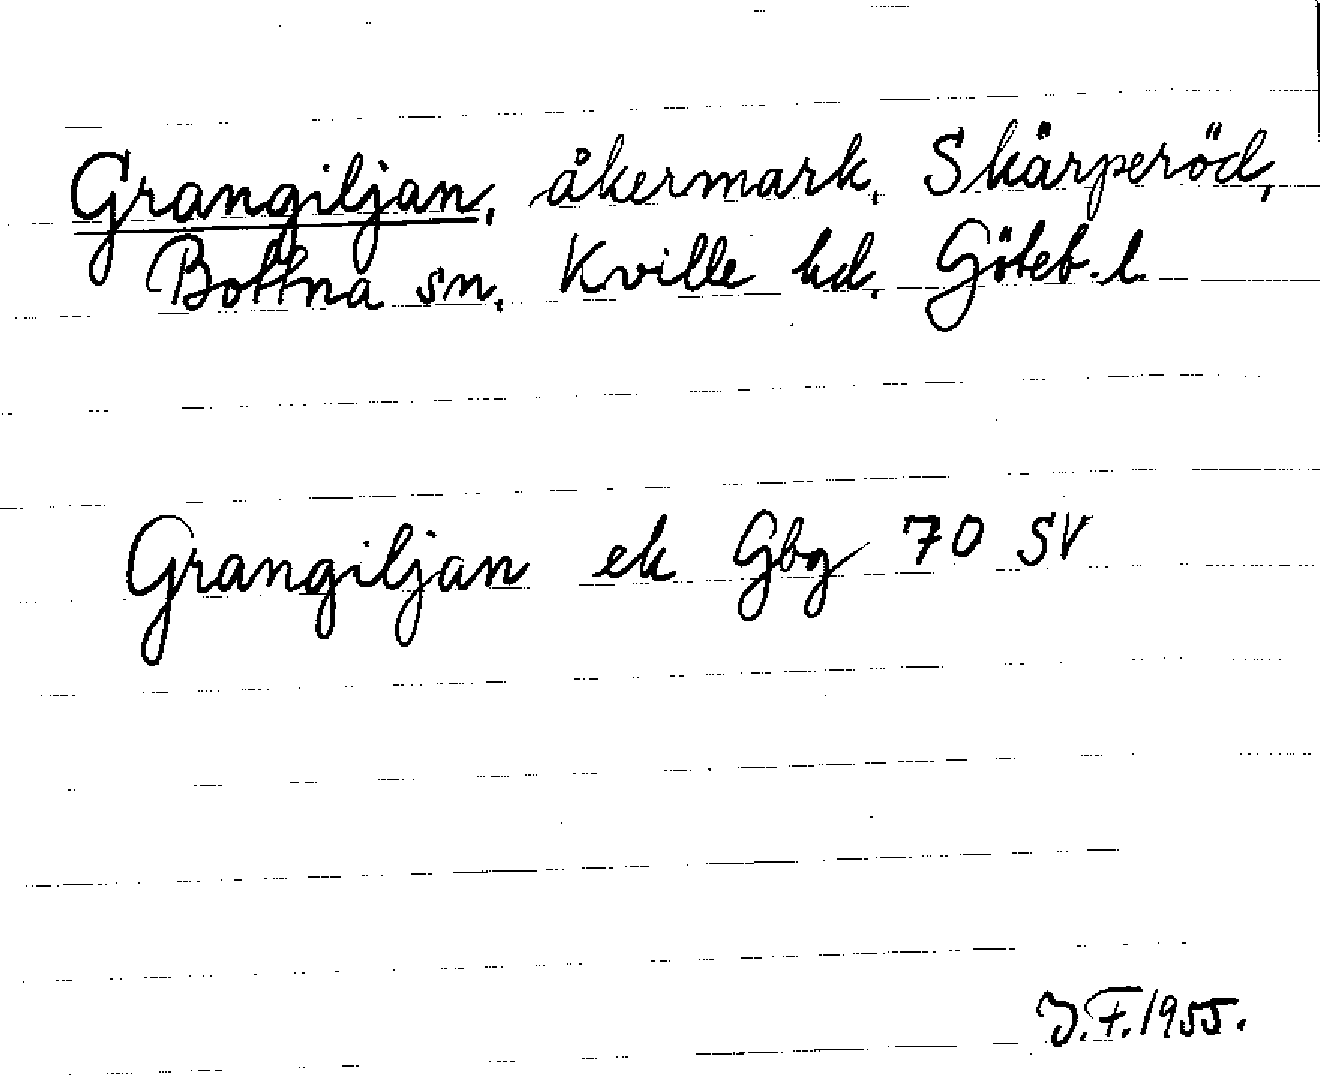 Grangiljan, åkermark, Skärperöd,
Bottna sn, Kville hd, Göteb. l.
Grangiljan ek Gbg 70 SV
J.F. 1955.